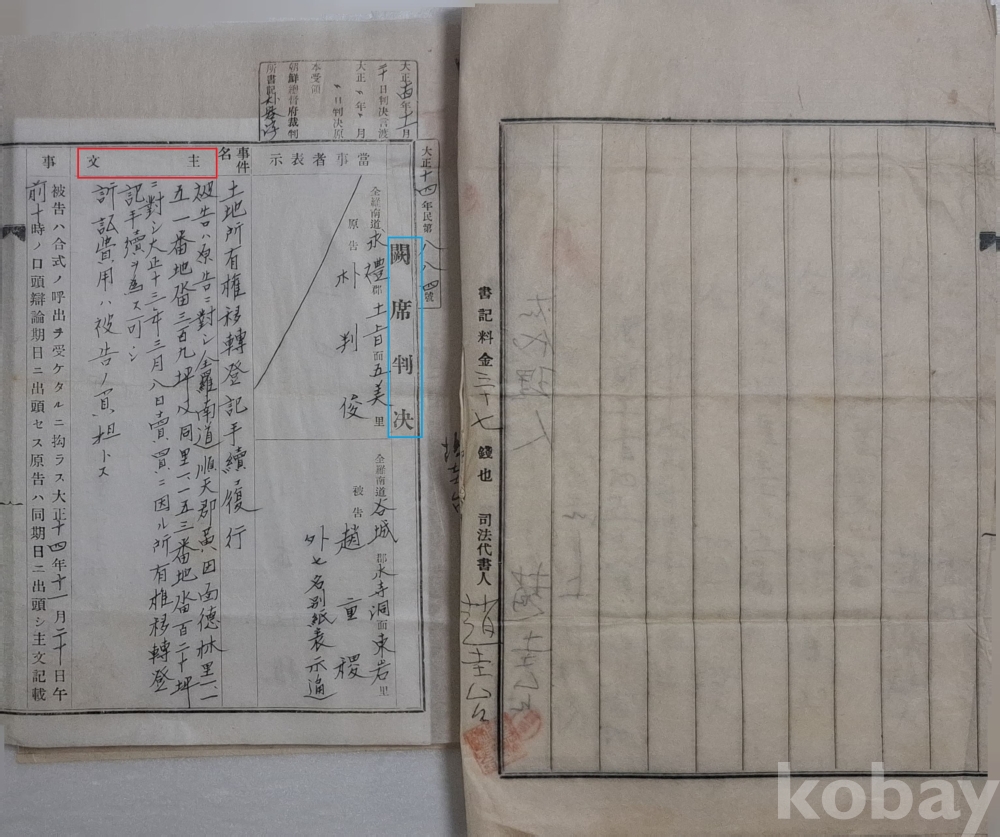 大正十四年十一月
二十日判決言渡
大正〃年〃月
〃日判決原
本受領
朝鮮總督府裁判
所書記
大正十四年民第八八四號
闕席判决
當事者表示
全羅南道求禮郡土旨面五美里
原告
朴判俊
全羅南道谷城郡木寺洞面東岩里
被告
趙重稷
外七名別紙表示通
事件名
土地所有權移轉登記手續履行
主文
被告ハ原告ニ對シ全羅南道順天郡黃田面德林里一、
五一番地畓三五九坪及同里一、一五三番地畓百二十坪
ニ對シ大正十三年三月八日賣買ニ因ル所有權移轉登
記手續ヲ爲ス可シ
訴訟費用ハ被告ノ負担トス
事
被告ハ合式ノ呼出ヲ受ケタルニ拘ラス大正十四年十一月二十日午
前十時ノ口頭辯論期日ニ出頭セス原告ハ同期日ニ出頭シ主文記載
書記料金三十七錢也
司法代書人 趙圭台
kobay